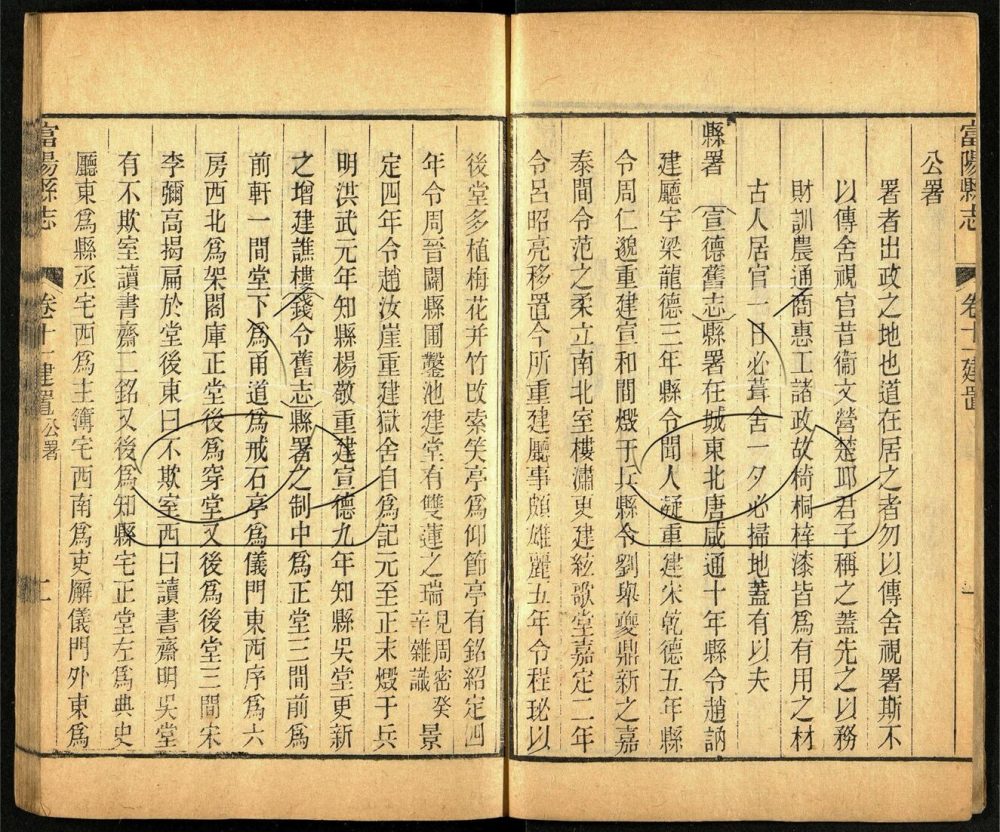 富陽縣志
卷十一建置
一
公署
署者出政之地也道在居之者勿以傳舍視署斯不
以傳舍視官昔衞文營楚邱君子稱之蓋先之以務
財訓農通商惠工諸政故椅桐梓漆皆爲有用之材
古人居官一日必葺舍一夕必掃地蓋有以夫
縣署(宣德舊志)縣署在城東北唐咸通十年縣令趙訥
建廳宇梁龍德三年縣令聞人凝重建宋乾德五年縣
令周仁邈重建宣和間燬于兵縣令劉舉夔鼎新之嘉
泰間令范之柔立南北室樓瀟更建絃歌堂嘉定二年
令呂昭亮移置今所重建廳事頗雄麗五年令程珌以
後堂多植梅花并竹攺索笑亭爲仰節亭有銘紹定四
年令周晉闢縣圃鑿池建堂有雙蓮之瑞見周密癸辛雜識景
定四年令趙汝崖重建獄舍自爲記元至正末燬于兵
明洪武元年知縣楊敬重建宣德九年知縣吳堂更新
之增建譙樓錢令舊志縣署之制中爲正堂三間前爲
前軒一間堂下爲甬道爲戒石亭爲儀門東西序爲六
房西北爲架閣庫正堂後爲穿堂又後爲後堂三間宋
李彌高揭扁於堂後東曰不欺室西曰讀書齋明吳堂
有不欺室讀書齋二銘又後爲知縣宅正堂左爲典史
廳東爲縣丞宅西爲主簿宅西南爲吏廨儀門外東爲
富陽縣志
卷十一建置公署
二